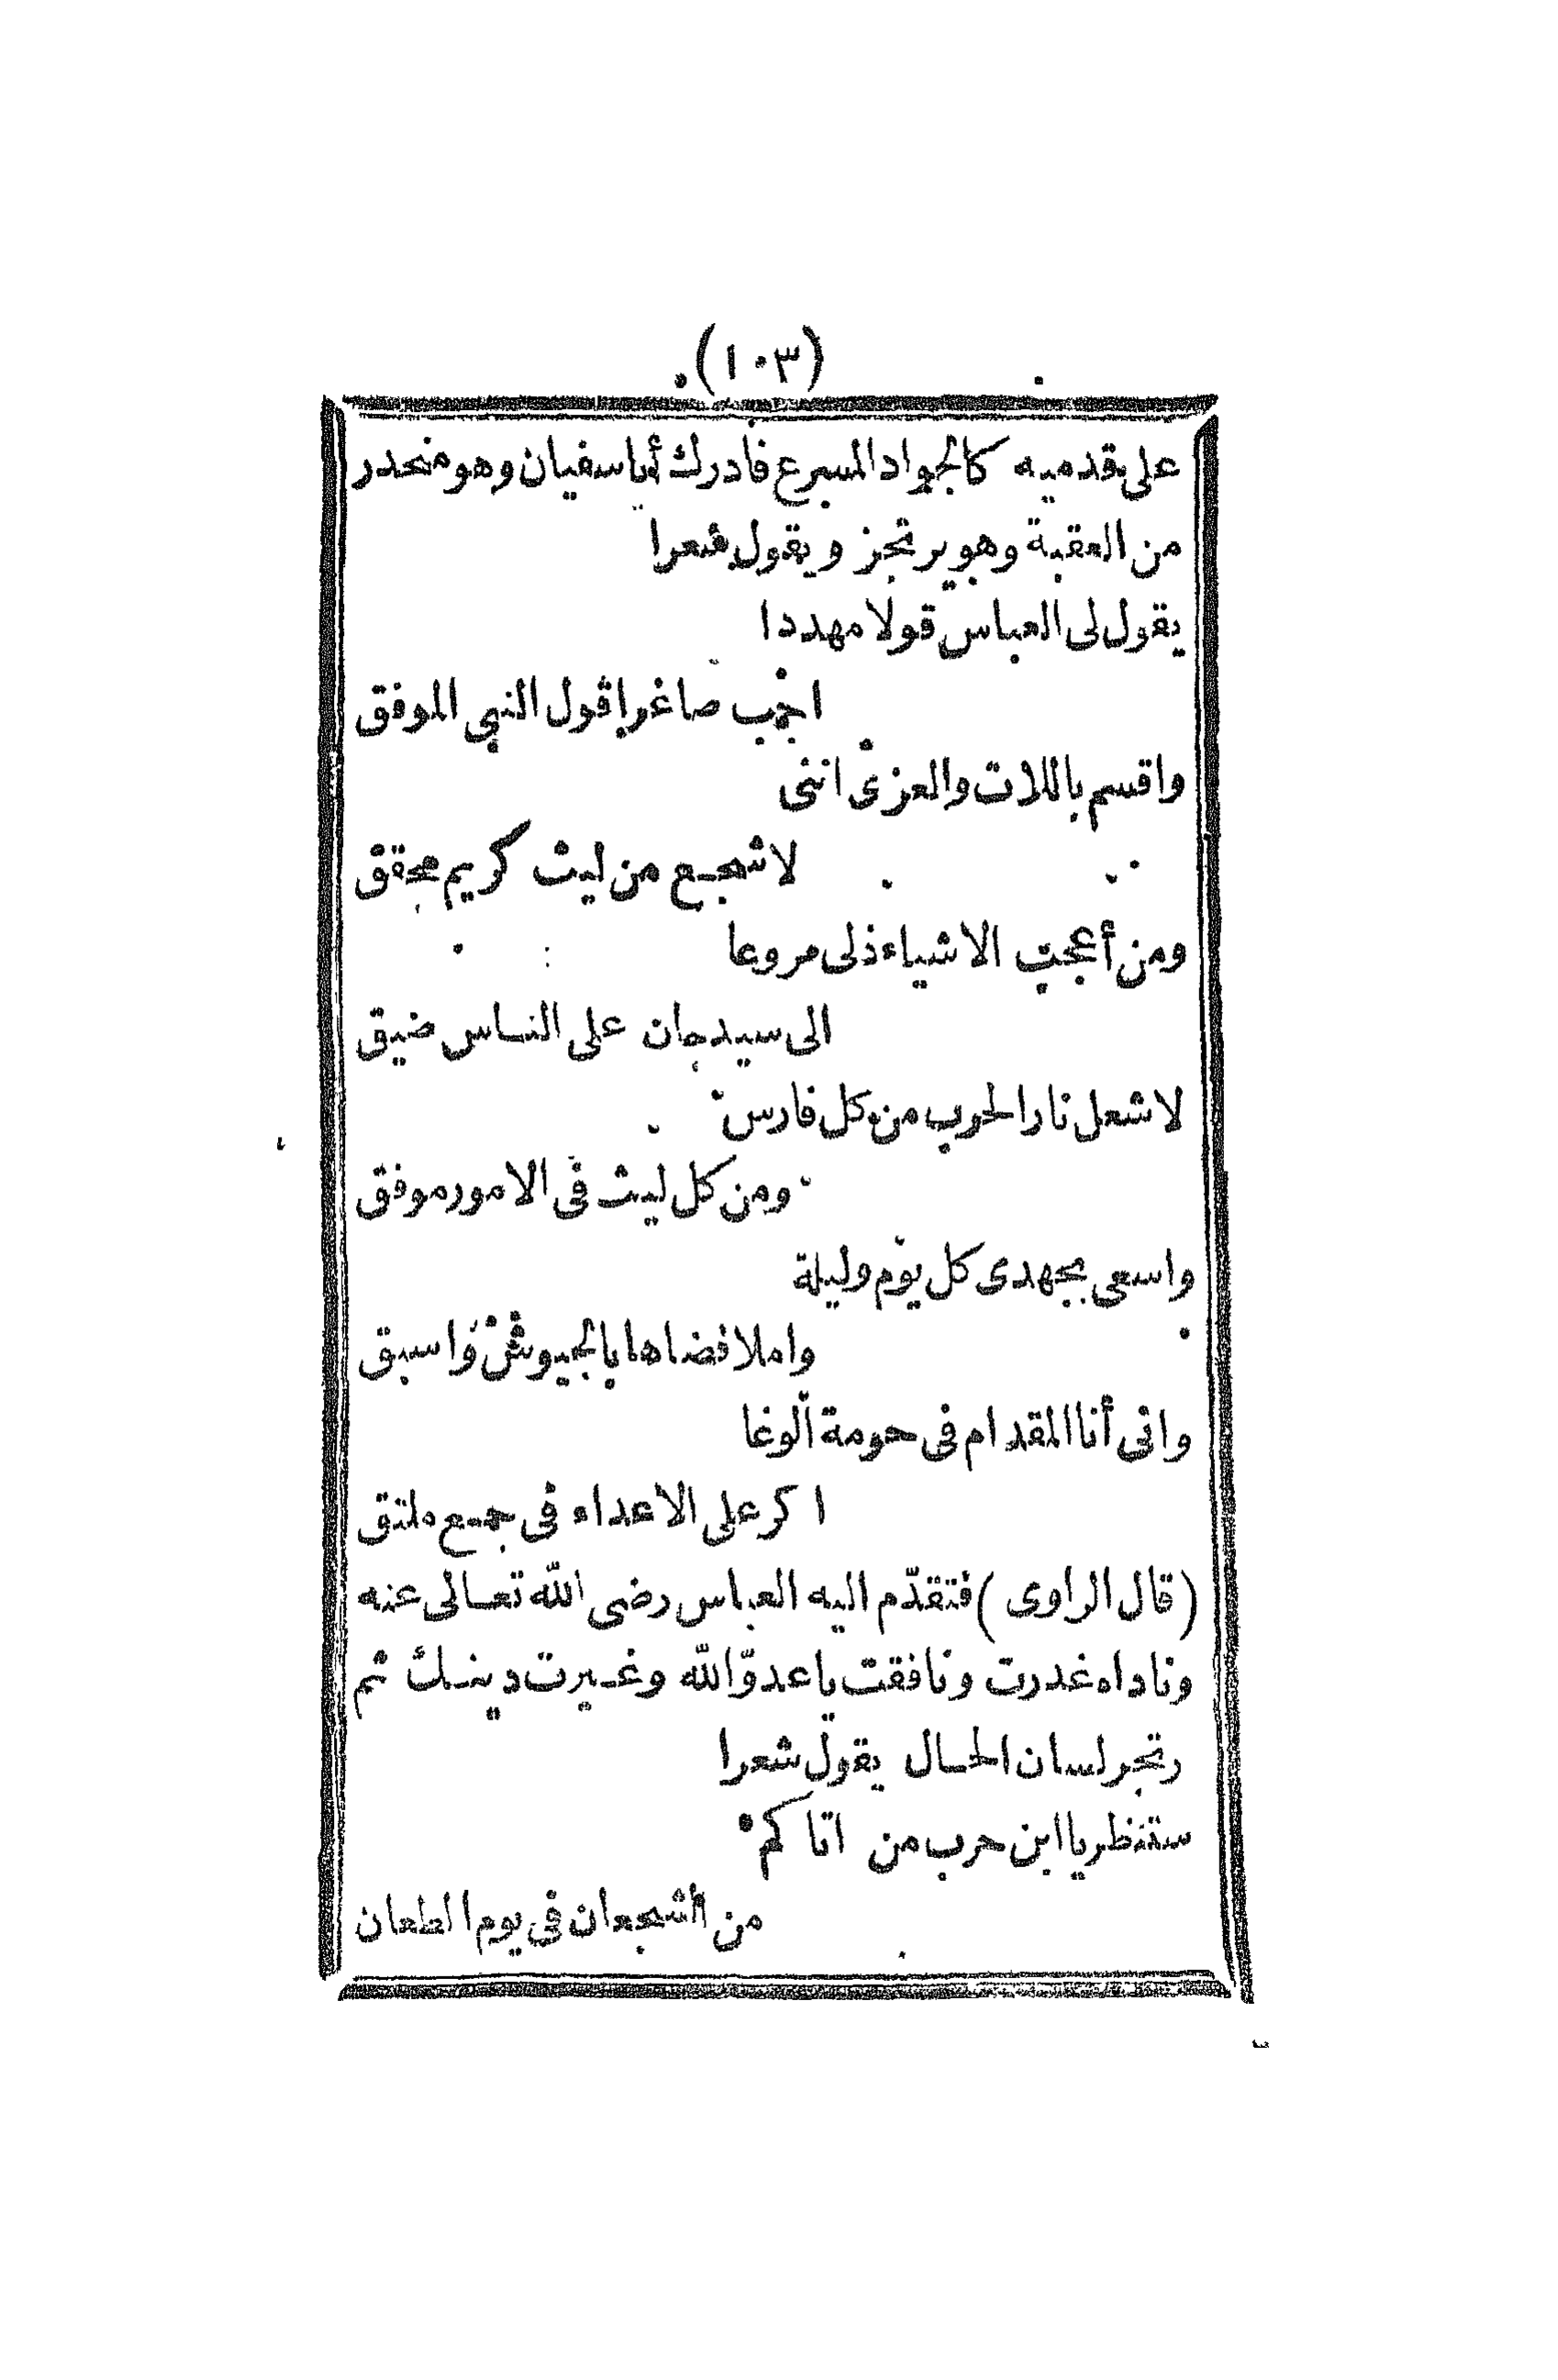 (١٠٣)
على قدميه كالجواد المسرع فادرك أبا سفيان وهو منحدر
من العقبة وهو يرتجز ويقول شعرا
يقول لى العباس قولا مهددا
اجب صاغرا قول النبى الموفق
واقسم باللات والعزى اننى
لاشجع من ليث كريم محقق
ومن أعجب الاشياء ذلى مروعا
الى سيد جان على الناس ضيق
لاشعل نار الحرب من كل فارس
ومن كل ليث فى الامور موفق
واسعى بجهدى كل يوم وليلة
واملا فضاها بالجيوش واسبق
وانى أنا المقدام فى حومة الوغا
اكر على الاعداء فى جمع ملتق
(قال الراوى) فتقدّم اليه العباس رضى الله تعالى عنه
وناداه غدرت ونافقت يا عدوّ الله وغيرت دينك ثم
رتجر لسان الحال يقول شعرا
ستنظر يا ابن حرب من اتاكم
من الشجعان فى يوم الطعان